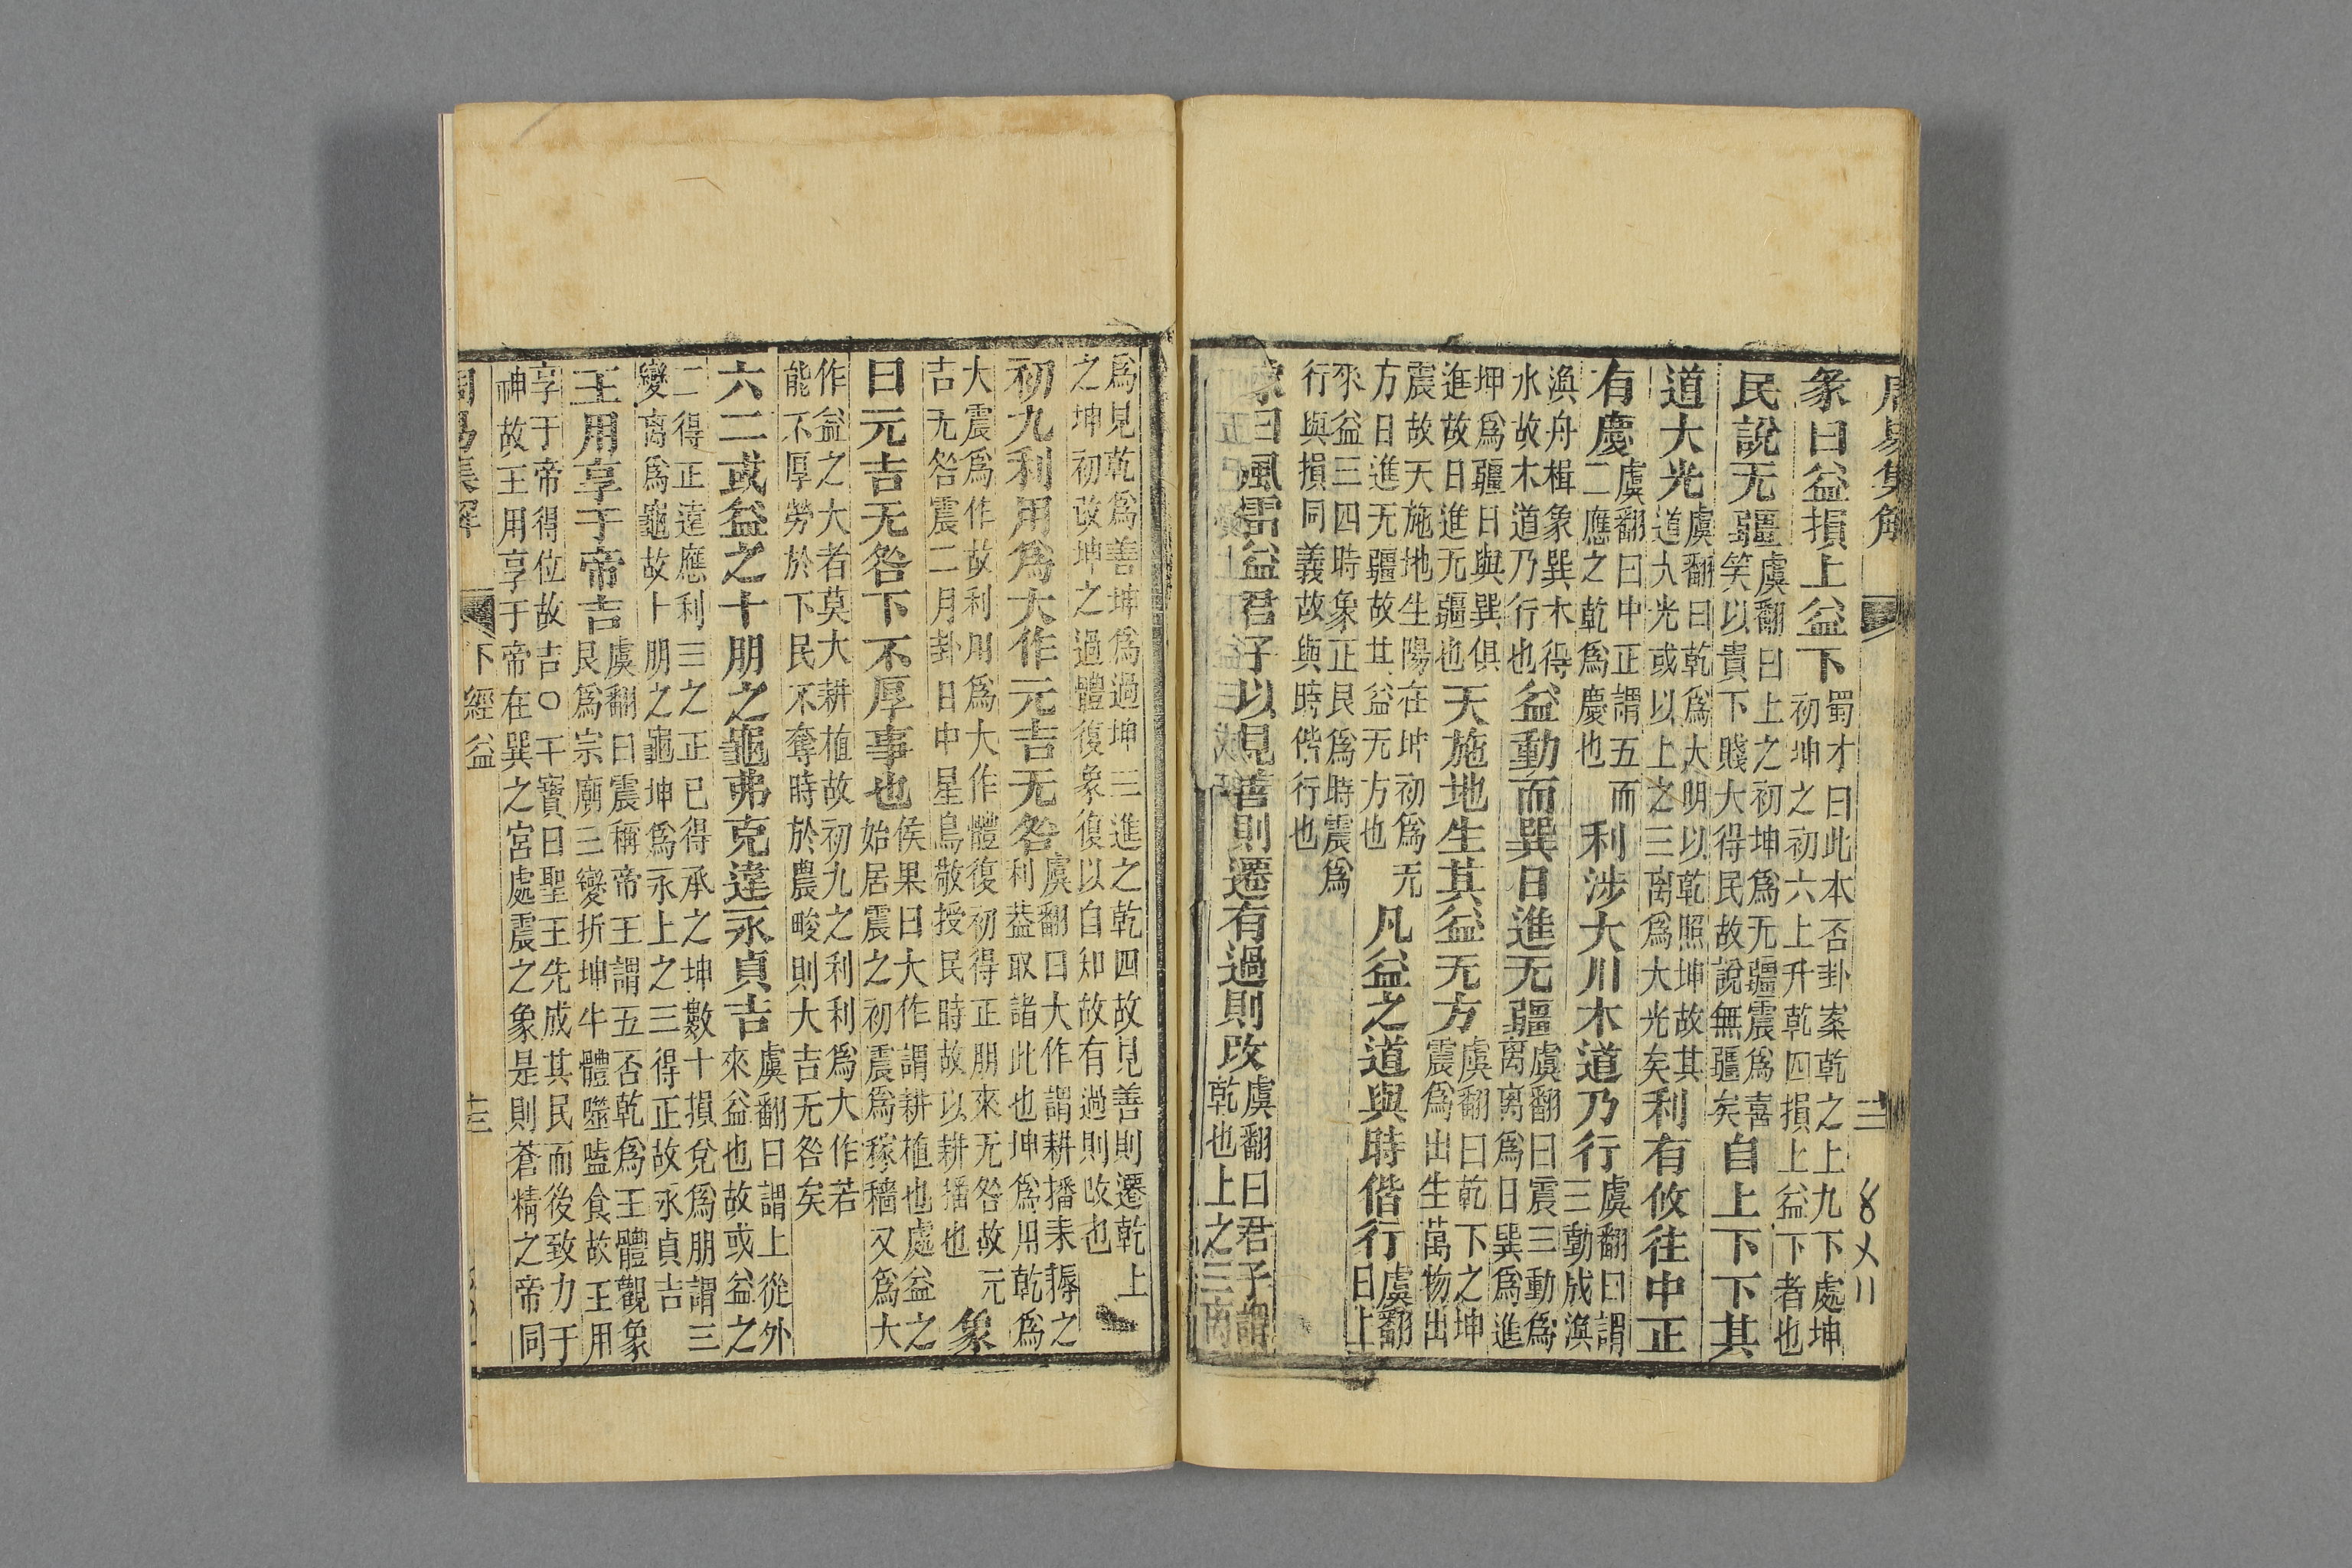 周易集解
彖曰益損上益下蜀才曰此本否卦案乾之上九下處坤初坤之初六上升乾四損上益下者也
民說无疆虞翻曰上之初坤爲无疆震爲喜笑以貴下賤大得民故說無疆矣自上下下其
道大光虞翻曰乾爲大明以乾照坤故其道大光或以上之三离爲大光矣利有攸往中正
有慶虞翻曰中正謂五而二應之乾爲慶也利涉大川木道乃行虞翻曰謂三動成渙
渙舟楫象巽木得水故木道乃行也益動而巽日進无疆虞翻曰震三動爲离离爲日巽爲進
坤爲疆日與巽俱進故日進无疆也天施地生其益无方虞翻曰乾下之坤震爲出生萬物出
震故天施地生陽在坤初爲无方日進无疆故其益无方也凡益之道與時偕行虞翻曰上
來益三四時象正艮爲時震爲行與損同義故與時偕行也
象曰風雷益君子以見善則遷有過則改虞翻曰君子謂乾也上之三
爲見乾爲善坤爲過坤三進之乾四故見善則遷乾上之坤初改坤之過體復象復以自知故有過則改也
初九利用爲大作元吉无咎虞翻曰大作謂耕播耒耨之利葢取諸此也坤爲用乾爲
大震爲作故利用爲大作體復初得正朋來无咎故元吉无咎震二月卦日中星鳥敬授民時故以耕播也象
曰元吉无咎下不厚事也侯果曰大作謂耕植也處益之始居震之初震爲稼穡又爲大
作益之大者莫大耕植故初九之利利爲大作若能不厚勞於下民不奪時於農畯則大吉无咎矣
六二或益之十朋之龜弗克違永貞吉虞翻曰謂上從外來益也故或益之
二得正遠應利三之正已得承之坤數十損兌爲朋謂三變离爲龜故十朋之龜坤爲永上之三得正故永貞吉
王用享于帝吉虞翻曰震稱帝王謂五否乾爲王體觀象艮爲宗廟三變折坤牛體噬嗑食故王用
享于帝得位故吉○干寶曰聖王先成其民而後致力于神故王用享于帝在巽之宮處震之象是則蒼精之帝同
周易集解 下經 益 十三